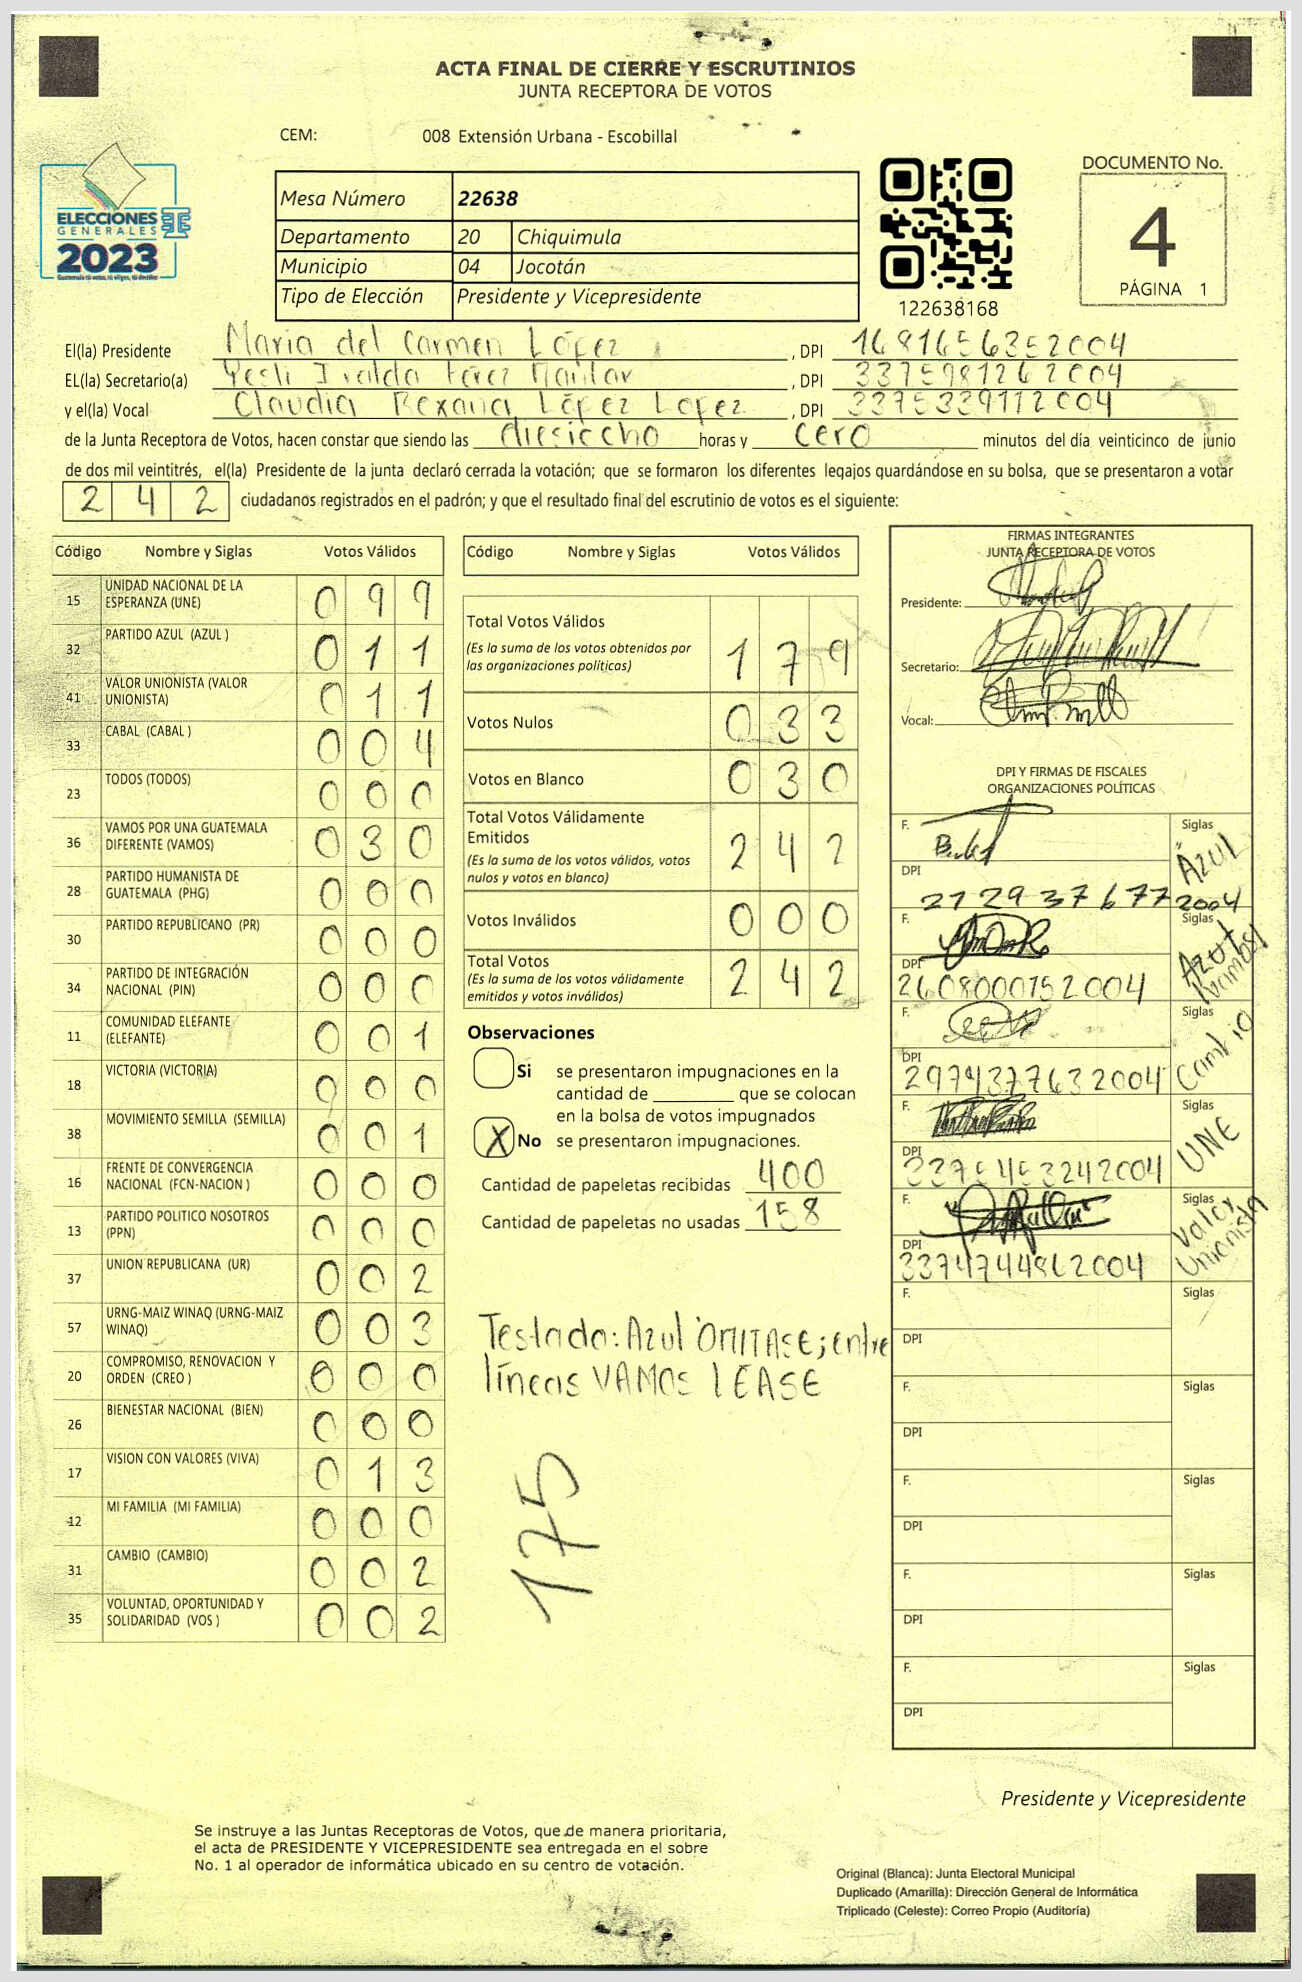 ACTA FINAL DE CIERRE Y ESCRUTINIOS
JUNTA RECEPTORA DE VOTOS
CEM: 008 Extensión Urbana - Escobillal
ELECCIONES
GENERALES
2023
Mesa Número 22638
Departamento 20 Chiquimula
Municipio 04 Jocotán
Tipo de Elección Presidente y Vicepresidente
122638168
DOCUMENTO No.
4
PÁGINA 1
El(la) Presidente Maria del Carmen López , DPI 1681656352004
EL(la) Secretario(a) , DPI 3375981262004
y el(la) Vocal Claudia Roxana López Lopez , DPI 3375339112004
de la Junta Receptora de Votos, hacen constar que siendo las diesiocho horas y cero minutos del día veinticinco de junio
de dos mil veintitrés, el(la) Presidente de la junta declaró cerrada la votación; que se formaron los diferentes legajos quardándose en su bolsa, que se presentaron a votar
2 4 2 ciudadanos registrados en el padrón; y que el resultado final del escrutinio de votos es el siguiente:
Código Nombre y Siglas Votos Válidos
15 UNIDAD NACIONAL DE LA ESPERANZA (UNE) 0 9 9
32 PARTIDO AZUL (AZUL ) 0 1 1
41 VALOR UNIONISTA (VALOR UNIONISTA) 0 1 1
33 CABAL (CABAL ) 0 0 4
23 TODOS (TODOS) 0 0 0
36 VAMOS POR UNA GUATEMALA DIFERENTE (VAMOS) 0 3 0
28 PARTIDO HUMANISTA DE GUATEMALA (PHG) 0 0 0
30 PARTIDO REPUBLICANO (PR) 0 0 0
34 PARTIDO DE INTEGRACIÓN NACIONAL (PIN) 0 0 0
11 COMUNIDAD ELEFANTE (ELEFANTE) 0 0 1
18 VICTORIA (VICTORIA) 0 0 0
38 MOVIMIENTO SEMILLA (SEMILLA) 0 0 1
16 FRENTE DE CONVERGENCIA NACIONAL (FCN-NACION ) 0 0 0
13 PARTIDO POLITICO NOSOTROS (PPN) 0 0 0
37 UNION REPUBLICANA (UR) 0 0 2
57 URNG-MAIZ WINAQ (URNG-MAIZ WINAQ) 0 0 3
20 COMPROMISO, RENOVACION Y ORDEN (CREO ) 0 0 0
26 BIENESTAR NACIONAL (BIEN) 0 0 0
17 VISION CON VALORES (VIVA) 0 1 3
12 MI FAMILIA (MI FAMILIA) 0 0 0
31 CAMBIO (CAMBIO) 0 0 2
35 VOLUNTAD, OPORTUNIDAD Y SOLIDARIDAD (VOS ) 0 0 2
Código Nombre y Siglas Votos Válidos
Total Votos Válidos
(Es la suma de los votos obtenidos por
las organizaciones políticas) 1 7 9
Votos Nulos 0 3 3
Votos en Blanco 0 3 0
Total Votos Válidamente
Emitidos
(Es la suma de los votos válidos, votos
nulos y votos en blanco) 2 4 2
Votos Inválidos 0 0 0
Total Votos
(Es la suma de los votos válidamente
emitidos y votos inválidos) 2 4 2
Observaciones
Si se presentaron impugnaciones en la
cantidad de ________ que se colocan
en la bolsa de votos impugnados
X No se presentaron impugnaciones.
Cantidad de papeletas recibidas 400
Cantidad de papeletas no usadas 158
Testado: Azul OMITASE; entre
líneas VAMOS LEASE
175
FIRMAS INTEGRANTES
JUNTA RECEPTORA DE VOTOS
Presidente:
Secretario:
Vocal:
DPI Y FIRMAS DE FISCALES
ORGANIZACIONES POLÍTICAS
F. Siglas Azul
DPI 2729 37677 2004
F. Siglas Azul Vamos
DPI 2608000752004
F. Siglas Cambio
DPI 2974377632004
F. Siglas UNE
DPI 3375453242004
F. Siglas Valor Unionista
DPI 3374744862004
F. Siglas
DPI
F. Siglas
DPI
F. Siglas
DPI
F. Siglas
DPI
F. Siglas
DPI
Presidente y Vicepresidente
Se instruye a las Juntas Receptoras de Votos, que de manera prioritaria,
el acta de PRESIDENTE Y VICEPRESIDENTE sea entregada en el sobre
No. 1 al operador de informática ubicado en su centro de votación.
Original (Blanca): Junta Electoral Municipal
Duplicado (Amarilla): Dirección General de Informática
Triplicado (Celeste): Correo Propio (Auditoría)